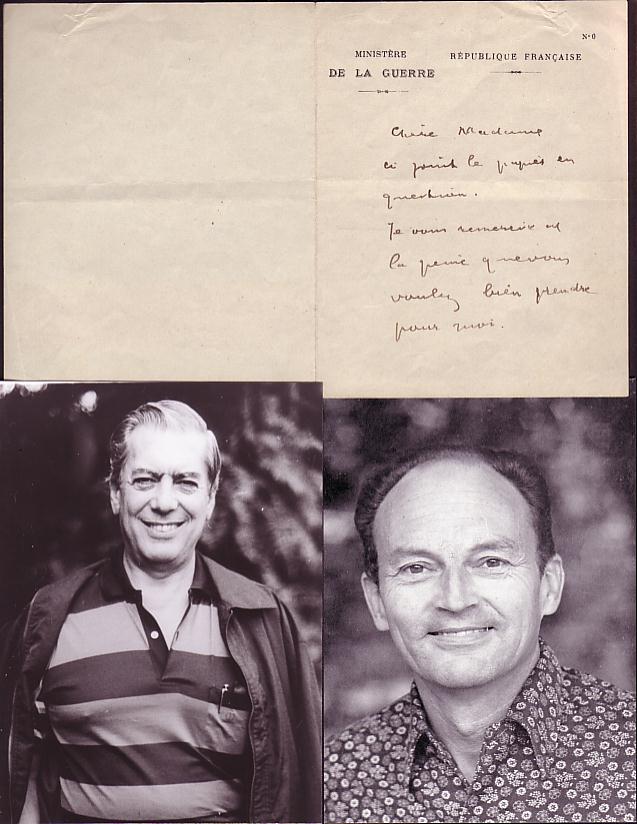 N° 0
MINISTÈRE
DE LA GUERRE
RÉPUBLIQUE FRANÇAISE
Chère Madame
ci joint le papier en
question.
Je vous remercie de
la peine que vous
voulez bien prendre
pour moi.